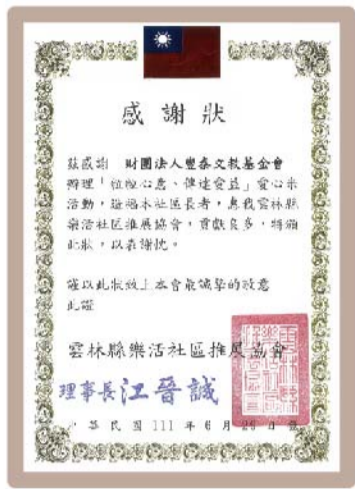 感謝狀
茲感謝 財團法人豐泰文教基金會
辦理「粒粒心意、傳遞愛益」愛心米
活動,遊福本社區長者,惠我雲林縣
樂活社區推展協會,貢獻良多,特頒
此狀,以表謝忱。
謹以此狀致上本會最誠摯的敬意
此證
雲林縣樂活社區推展協會
理事長江晉誠
中華民國 111 年 6 月 26 日